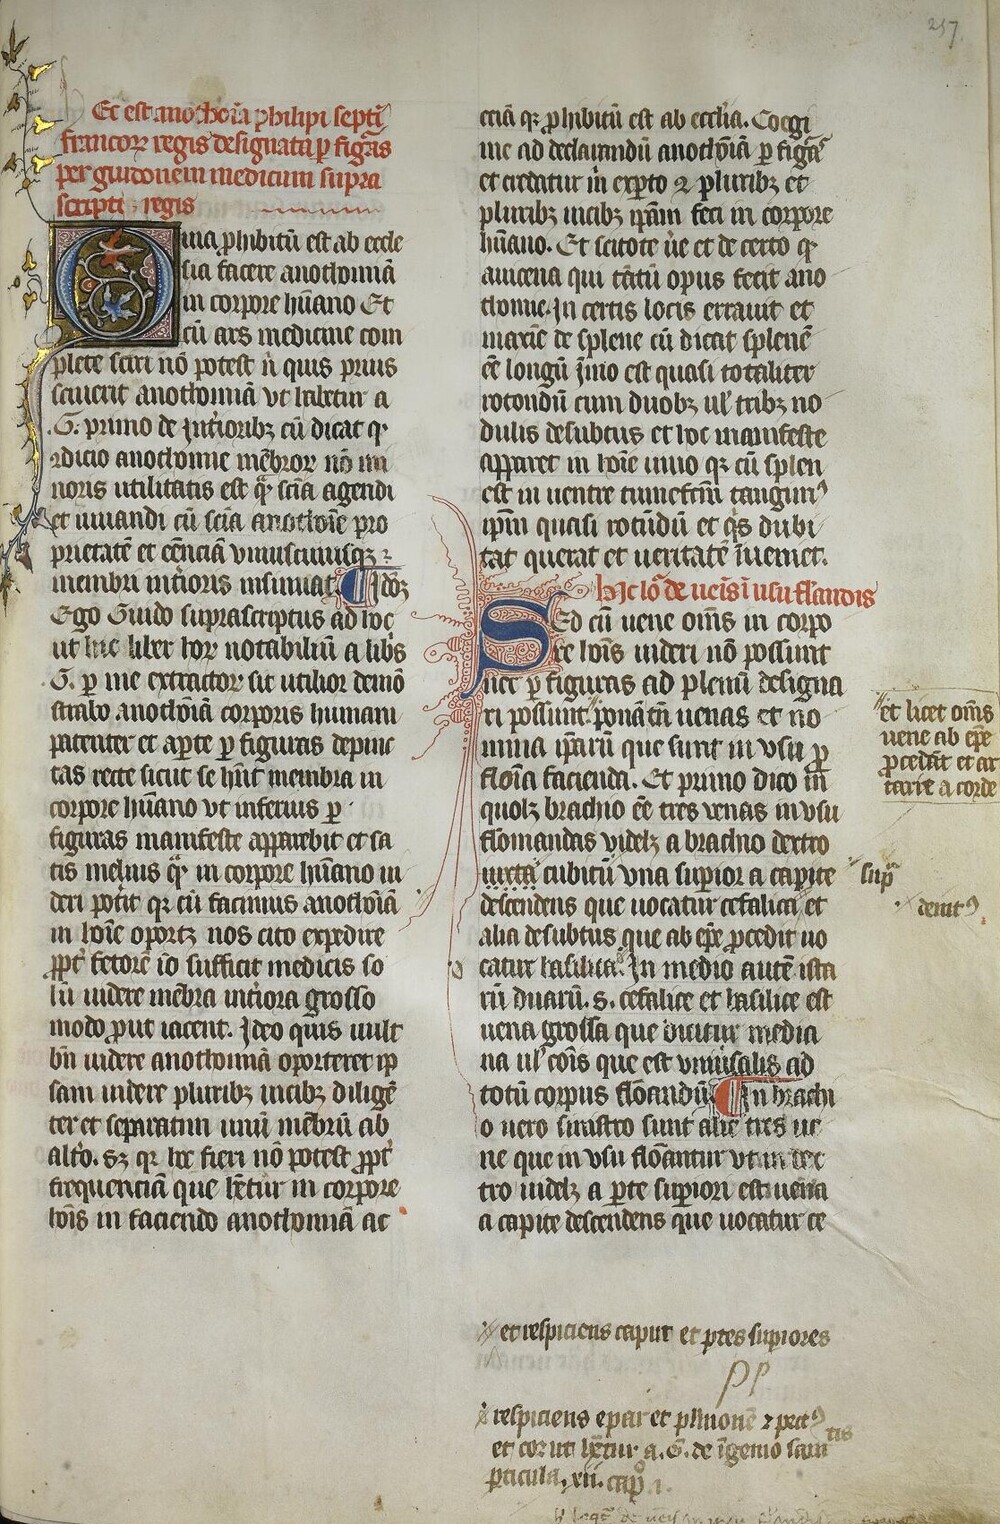 257.
Et est anothoīa philipi septī
francoꝝ regis designata ꝑ figᵃs
per guidonem medicum supra
scripti regis
Quia ꝓhibitū est ab eccle
sia facere anothomiā
in corpore hūano Et
cū ars medicine com
plete sciri nō potest ñ quis prius
sciuerit anothomiā vt habetur a
.G. primo de int̄ioribꝫ cū dicat qꝰ
rdicio anothomie mēbroꝝ nō mi
noris utilitatis est qᵃ̄ sciā agendi
et iuuandi cū sciā anothoīe pro
prietatē et eēnciā vniuscuiusqꝫ
membri int̄ioris insinuat. ¶ Idꝫ
Ego Guido suprascriptus ad hoc
ut hic liber hoꝝ notabiliū a libꝰs
.G. ꝑ me extractoꝝ sit utilior demō
strabo anothōiā corporis humani
patenter et aꝑte ꝑ figuras depinc
tas recte sicut se hn̄t membra in
corpore hūano vt inferius ꝑ
figuras manifeste apparebit et sa
tis melius qᵃ̄ in corpore hūano ui
deri pot̄it qꝛ cū facimus anothōiā
in hoīe oportꝫ nos cito expedire
ꝓpt̄ fetorē iō sufficit medicis so
lū uidere mēbra int̄iora grosso
modo ꝓut iacent. Ideo quis uult
bn̄ uidere anothomiā oporteret ip
sam uidere pluribꝫ uicibꝫ diligē
ter et separatim unū mēbrū ab
alt̄o. sꝫ qꝛ hec fieri nō potest ꝓpt̄
frequenciā que hēt̄ur in corpore
hoīs in faciendo anothomiā ac
eciā qꝛ ꝓhibitū est ab ecclīa. Coegi
me ad declarandū anothōiā ꝑ figᵃs
et credatur m̄ exꝑto ⁊ pluribꝫ et
pluribꝫ uicibꝫ ipām feci in corpore
hūano. Et scitote u̅e et de certo qꝰ
auicena qui tātū opus fecit ano
thomie. In certis locis errauit et
maxīe de splene cū dicat splenē
eē longū ȳmo est quasi totaliter
rotondū cum duobꝫ ul̄ tribꝫ no
dulis desubtus et hoc manifeste
apparet in hoīe uiuo qꝛ cū splen
est in uentre tumefctm̄ tangimꝰ
ipm̄ quasi rotūdū et qⁱs dubi
tat querat et ueritatē īueniet.
hic lō de ueīs ī usu flandis
Sed cū uene om̄s in corpo
re hoīs uideri nō possunt
nec ꝑ figuras ad plenū designa
ri possunt. ponā tn̄ uenas et no
mina iꝑarū que sunt in vsu ꝓ
flōīa facienda. Et primo dico in
quolꝫ brachio eē tres venas in vsu
flomandas videlꝫ a brachio dextro
iuxta cubitū vna suꝑior a capite
descendens que uocatur cefalica et
alia desubtus que ab eꝑe ꝓcedit uo
catur basilica. In medio autē ista
rū duarū. s. cefalice et basilice est
uena grossa que dicitur media
na ul̄ cōis que est vniuīsalis ad
totū corpus flōandū ¶ In brachi
o uero sinistro sunt alie tres ue
ne que in vsu flōantur vt in dex
tro uidelꝫ a ꝑte suꝑiori est uena
a capite descendens que uocatur ce
et licet om̄s
uene ab eꝑe
ꝓcedāt et ar
tarie a corde
supᵃ
deritꝰ
et respiciens caput et ꝑtes suꝑiores
pp
respiciens epar et pulmonē ⁊ pectꝰ
et cor ut hētur a. G. de īgenio sani tis
ꝑticula. xii. cap̊ 1.